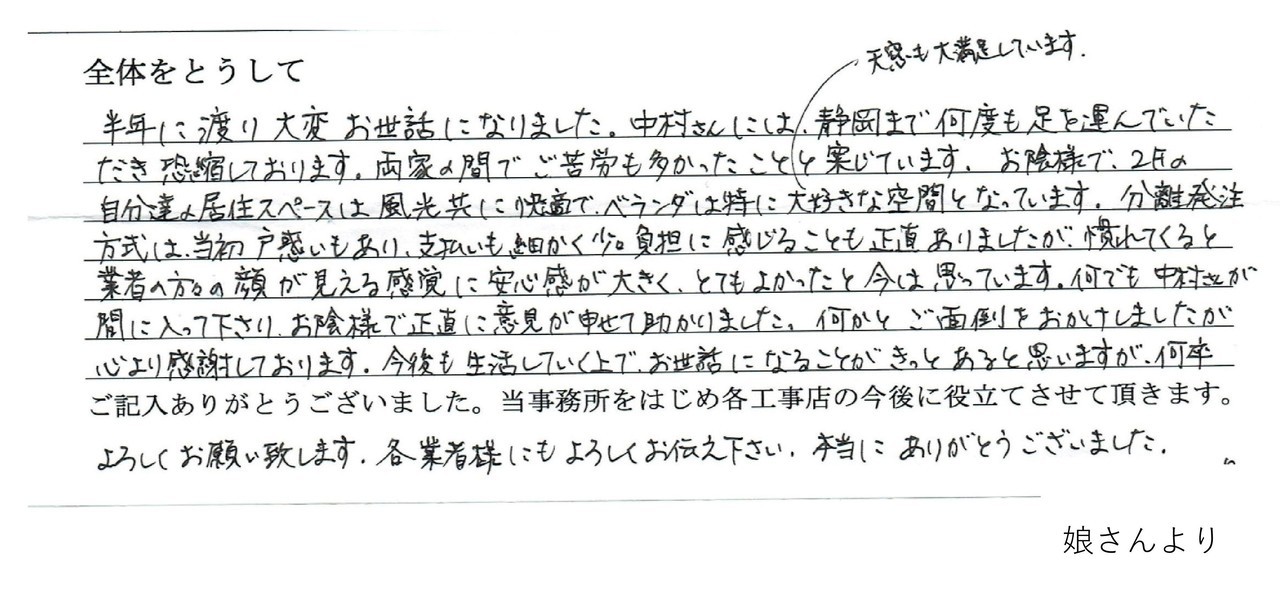 全体をとうして
天窓も大満足しています.
半年に渡り大変お世話になりました。中村さんには、静岡まで何度も足を運んでいた
だき恐縮しております。両家の間でご苦労も多かったことと案じています. お陰様で、2Fの
自分達の居住スペースは風光共に快適で、ベランダは特に大好きな空間となっています. 分離発注
方式は、当初戸惑いもあり、支払いも細かく少々負担に感じることも正直ありましたが、慣れてくると
業者の方々の顔が見える感覚に安心感が大きく、とてもよかったと今は思っています。何でも中村さんが
間に入って下さり、お陰様で正直に意見が申せて助かりました。何かとご面倒をおかけしましたが
心より感謝しております。今後も生活していく上で、お世話になることがきっとあると思いますが、何卒
ご記入ありがとうございました。当事務所をはじめ各工事店の今後に役立てさせて頂きます。
よろしくお願い致します. 各業者様にもよろしくお伝え下さい. 本当にありがとうございました.
娘さんより